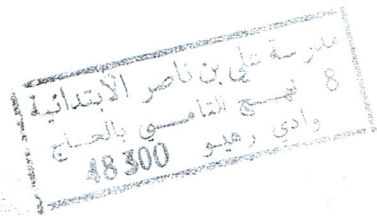 مدرسة علي بن ناصر الابتدائية
8 نهج القاسمي بالحاج
وادي رهيو 48300